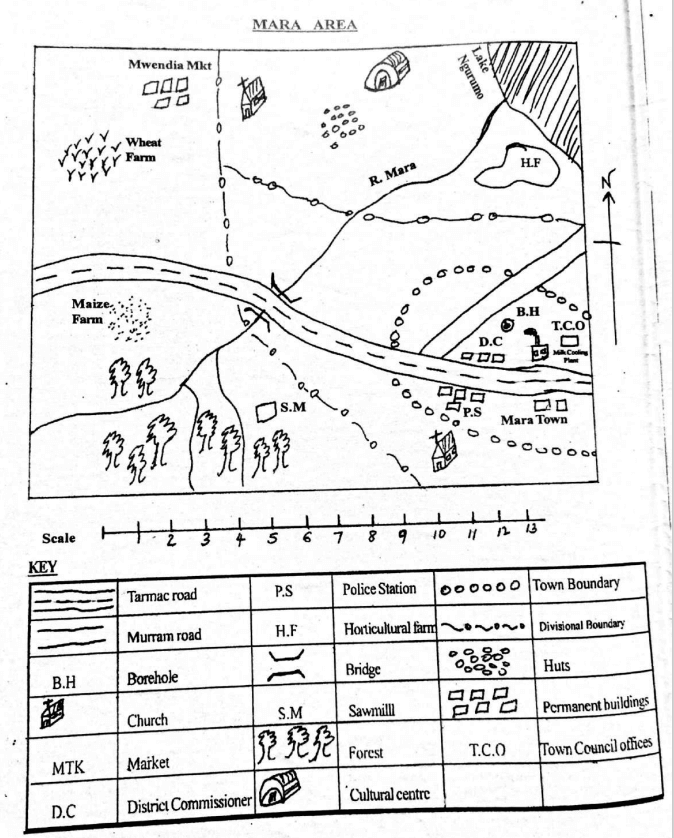 MARA AREA
Mwendia Mkt
Lake
Ngurumo
Wheat
Farm
H.F
R. Mara
N
Maize
Farm
B.H
T.C.O
D.C
Milk Cooling
Plant
S.M
P.S
Mara Town
Scale 1 2 3 4 5 6 7 8 9 10 11 12 13
KEY
Tarmac road P.S Police Station Town Boundary
Murram road H.F Horticultural farm Divisional Boundary
B.H Borehole Bridge Huts
Church S.M Sawmilll Permanent buildings
MTK Market Forest T.C.O Town Council offices
D.C District Commissioner Cultural centre